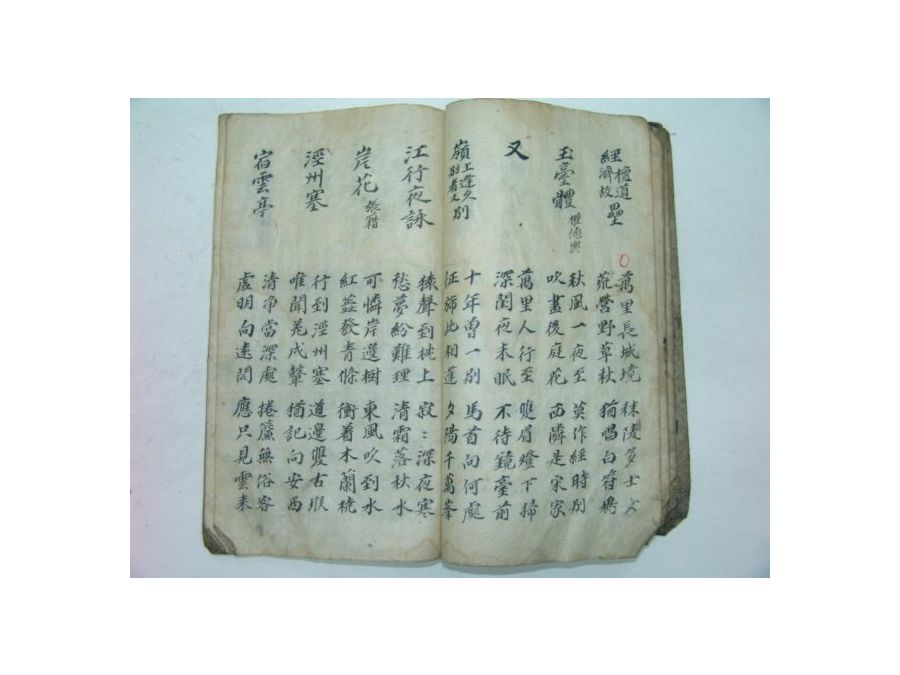 經檀道濟故壘
萬里長城境 秣陵多士女
荒營野草秋 猶唱白符鳩
玉臺體 權德輿
秋風一夜至 莫作經時別
吹盡後庭花 西隣是宋家
又
萬里人行至 雙眉燈下掃
深閨夜未眠 不待鏡臺前
嶺上逢久別者又別
十年曾一別 馬首向何處
征路此相逢 夕陽千萬峯
江行夜詠
猿聲到枕上 寂〻深夜寒
愁夢紛難理 清霜落秋水
岸花 張籍
可憐岸邊樹 東風吹到水
紅蕊發青條 衝着木蘭橈
涇州塞
行到涇州塞 道邊雙古堠
唯聞羌戍鼙 猶記向安西
宿雲亭
清淨當深處 捲簾無俗客
虛明向遠開 應只見雲来